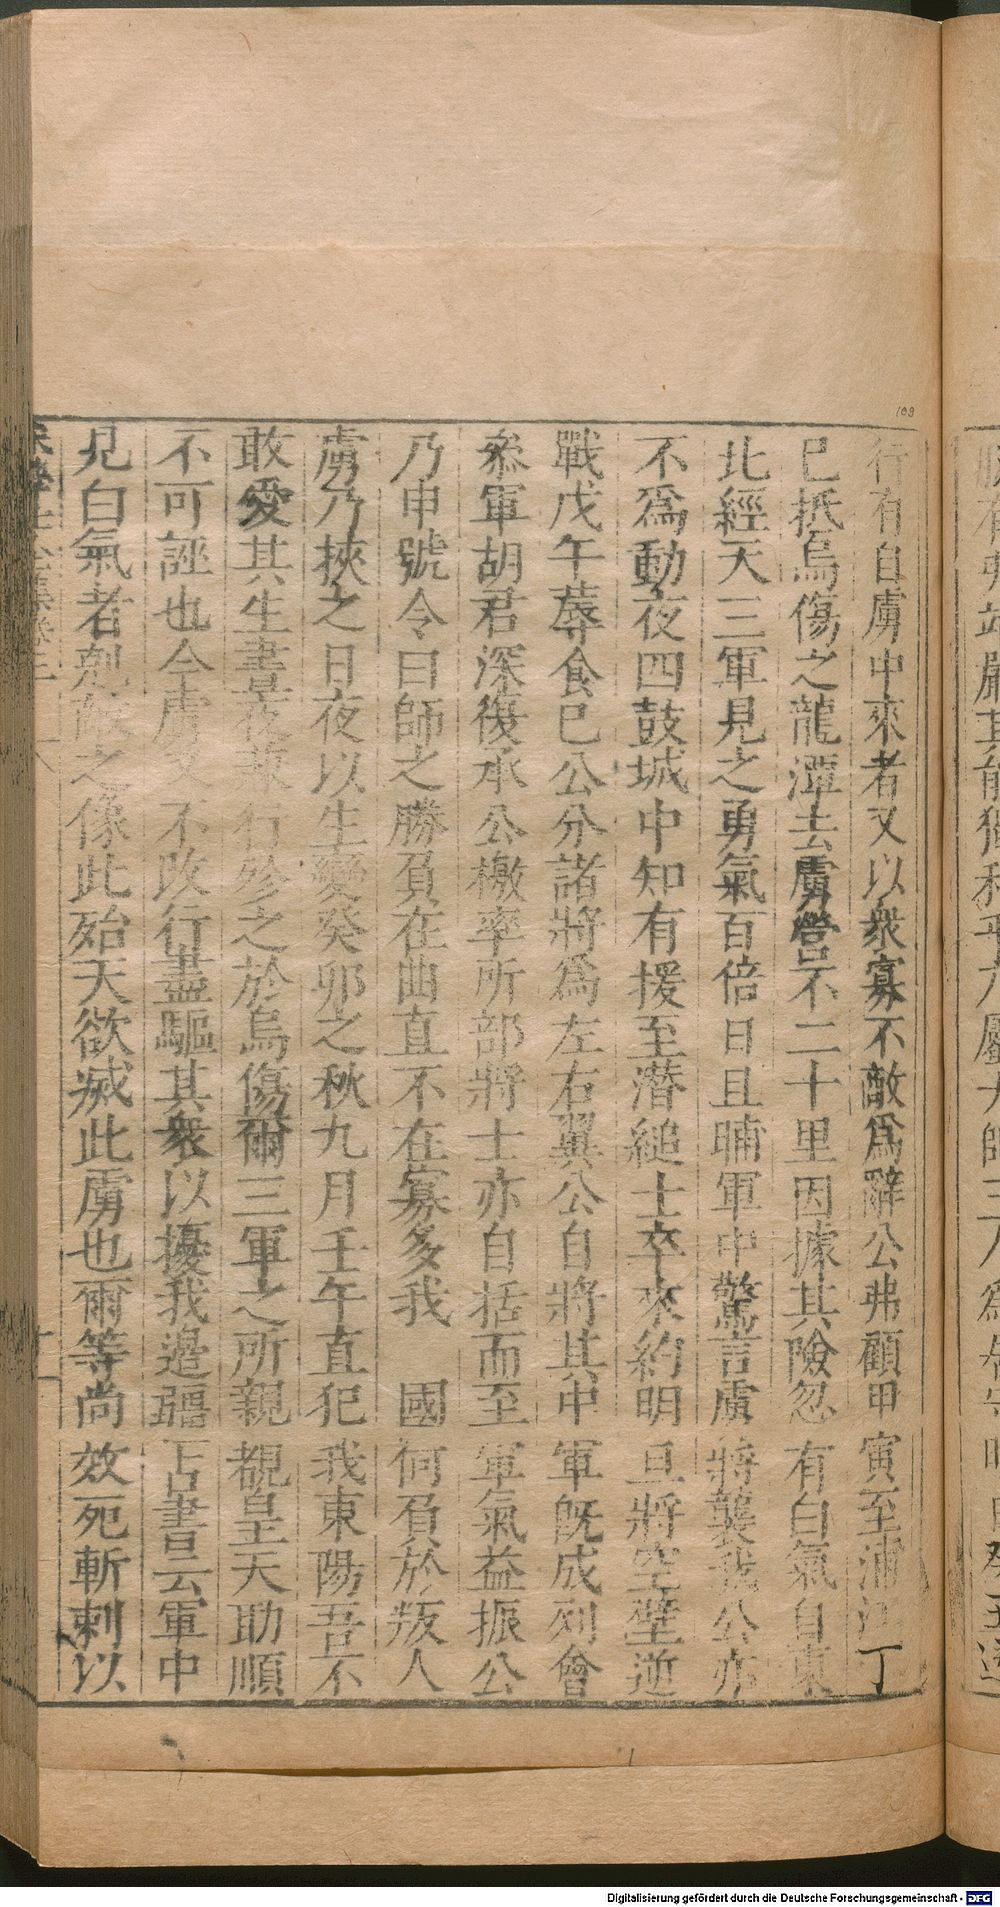 行有自虜中來者又以衆寡不敵爲辭公弗顧甲寅至浦江丁
巳抵烏傷之龍潭去虜營不二十里因據其險忽有白氣自東
北經天三軍見之勇氣百倍日且晡軍中驚言虜將襲我公亦
不爲動夜四鼓城中知有援至潜縋士卒來約明旦將空壁逆
戰戊午蓐食巳公分諸將爲左右翼公自將其中軍既成列會
叅軍胡君深復承公檄率所部將士亦自括而至軍氣益振公
乃申號令曰師之勝負在曲直不在寡多我　國何負於叛人
虜乃挾之日夜以生變癸卯之秋九月壬午直犯我東陽吾不
敢愛其生晝夜兼行殄之於烏傷爾三軍之所親覩皇天助順
不可誣也今虜又不改行盡驅其衆以擾我邊疆占書云軍中
見白氣者剋敵之像此殆天欲烕此虜也爾等尚效死斬刺以
109
Digitalisierung gefördert durch die Deutsche Forschungsgemeinschaft - DFG